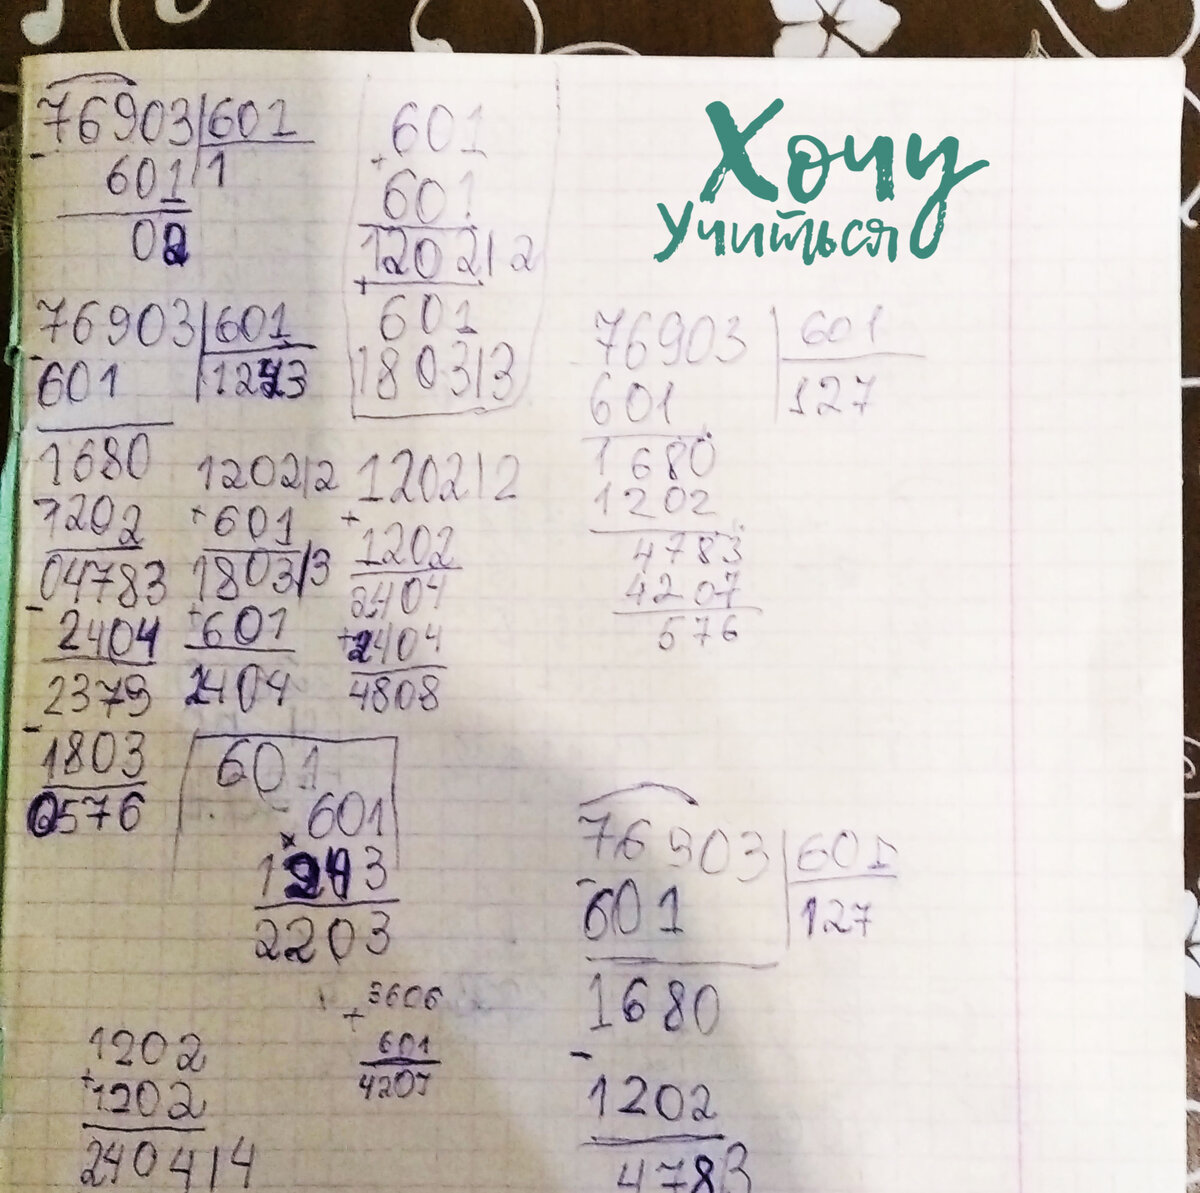 76903 601
- 601 1
02
601
+ 601
1202|2
+ 601
1803|3
Хочу
Учиться
76903 601
- 601
1680
1202
04783
- 2404
2379
- 1803
0576
1202|2
+ 601
1803|3
+ 601
2404
1202|2
+ 1202
2404
+ 2404
4808
76903 601
601 127
1680
1202
4783
4207
576
601
601
×
2203
3606
+ 601
4207
1202
+ 1202
2404|4
76903 601
- 601 127
1680
- 1202
4783